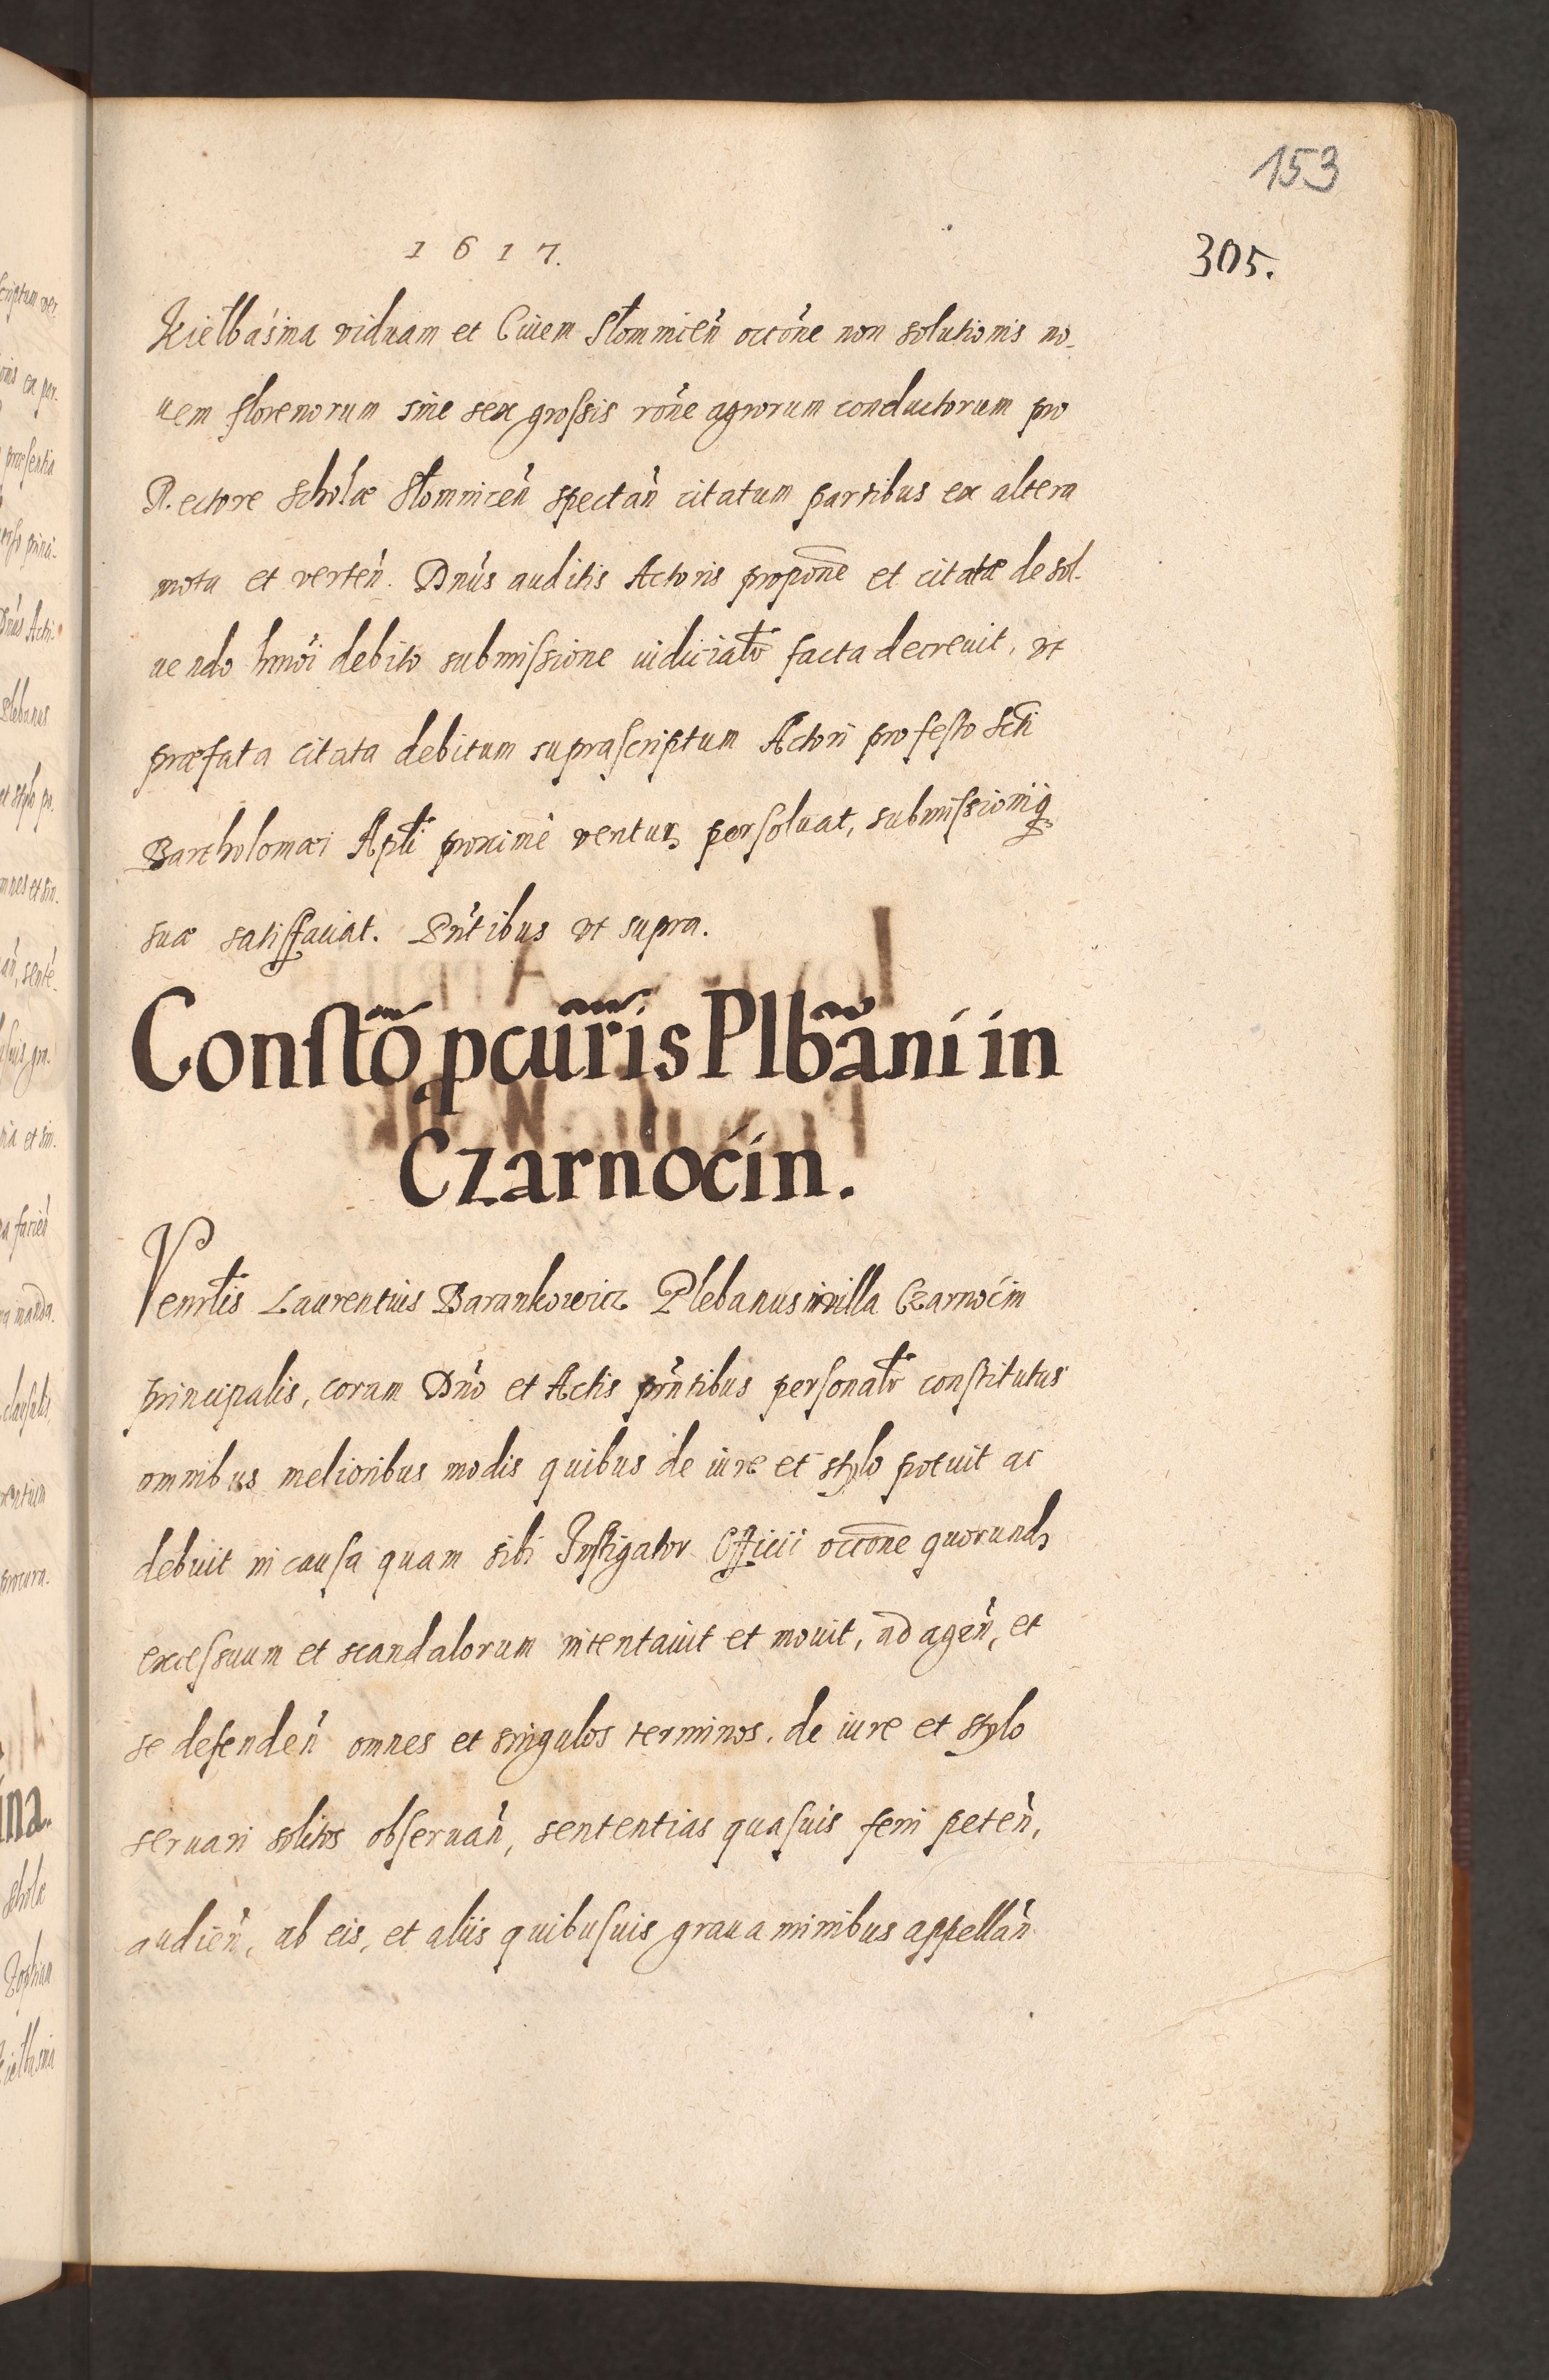 153
1617.
305.
Kiełbásina viduam et Ciuem Słomnicen̄ occōne non solutionis no-
uem florenorum sine sex grossis rōne agrorum conductorum pro
Rectore scholæ Słomnicen̄ spectan̄ citatum partibus ex altera
mota et verten̄. Dn̄us auditis Actoris propōne et citatæ de sol-
uendo hmōi debito submissione iudicialr̄ facta decreuit, vt
præfata citata debitum suprascriptum Actori pro festo Scti
Bartholomæi Apli proximè ventur, persoluat, submissioniq3
suæ satisfaciat. Pn̄tibus vt supra.
Constō pcuris Plbāni in
Czarnocin.
Venrlis Laurentius Barankowicz Plebanus in villa Czarnocin
principalis, coram Dn̄o et Actis prn̄tibus personalr̄ constitutus
omnibus melioribus modis quibus de iure et stylo potuit ac
debuit in causa quam sibi Instigator Officii occōne quorund,
excessuum et scandalorum intentauit et mouit, ad agen̄, et
se defenden̄ omnes et singulos terminos, de iure et stylo
seruari solitos obseruan̄, sententias quasuis ferri peten̄,
audien̄, ab eis, et aliis quibusuis grauaminibus appellan̄